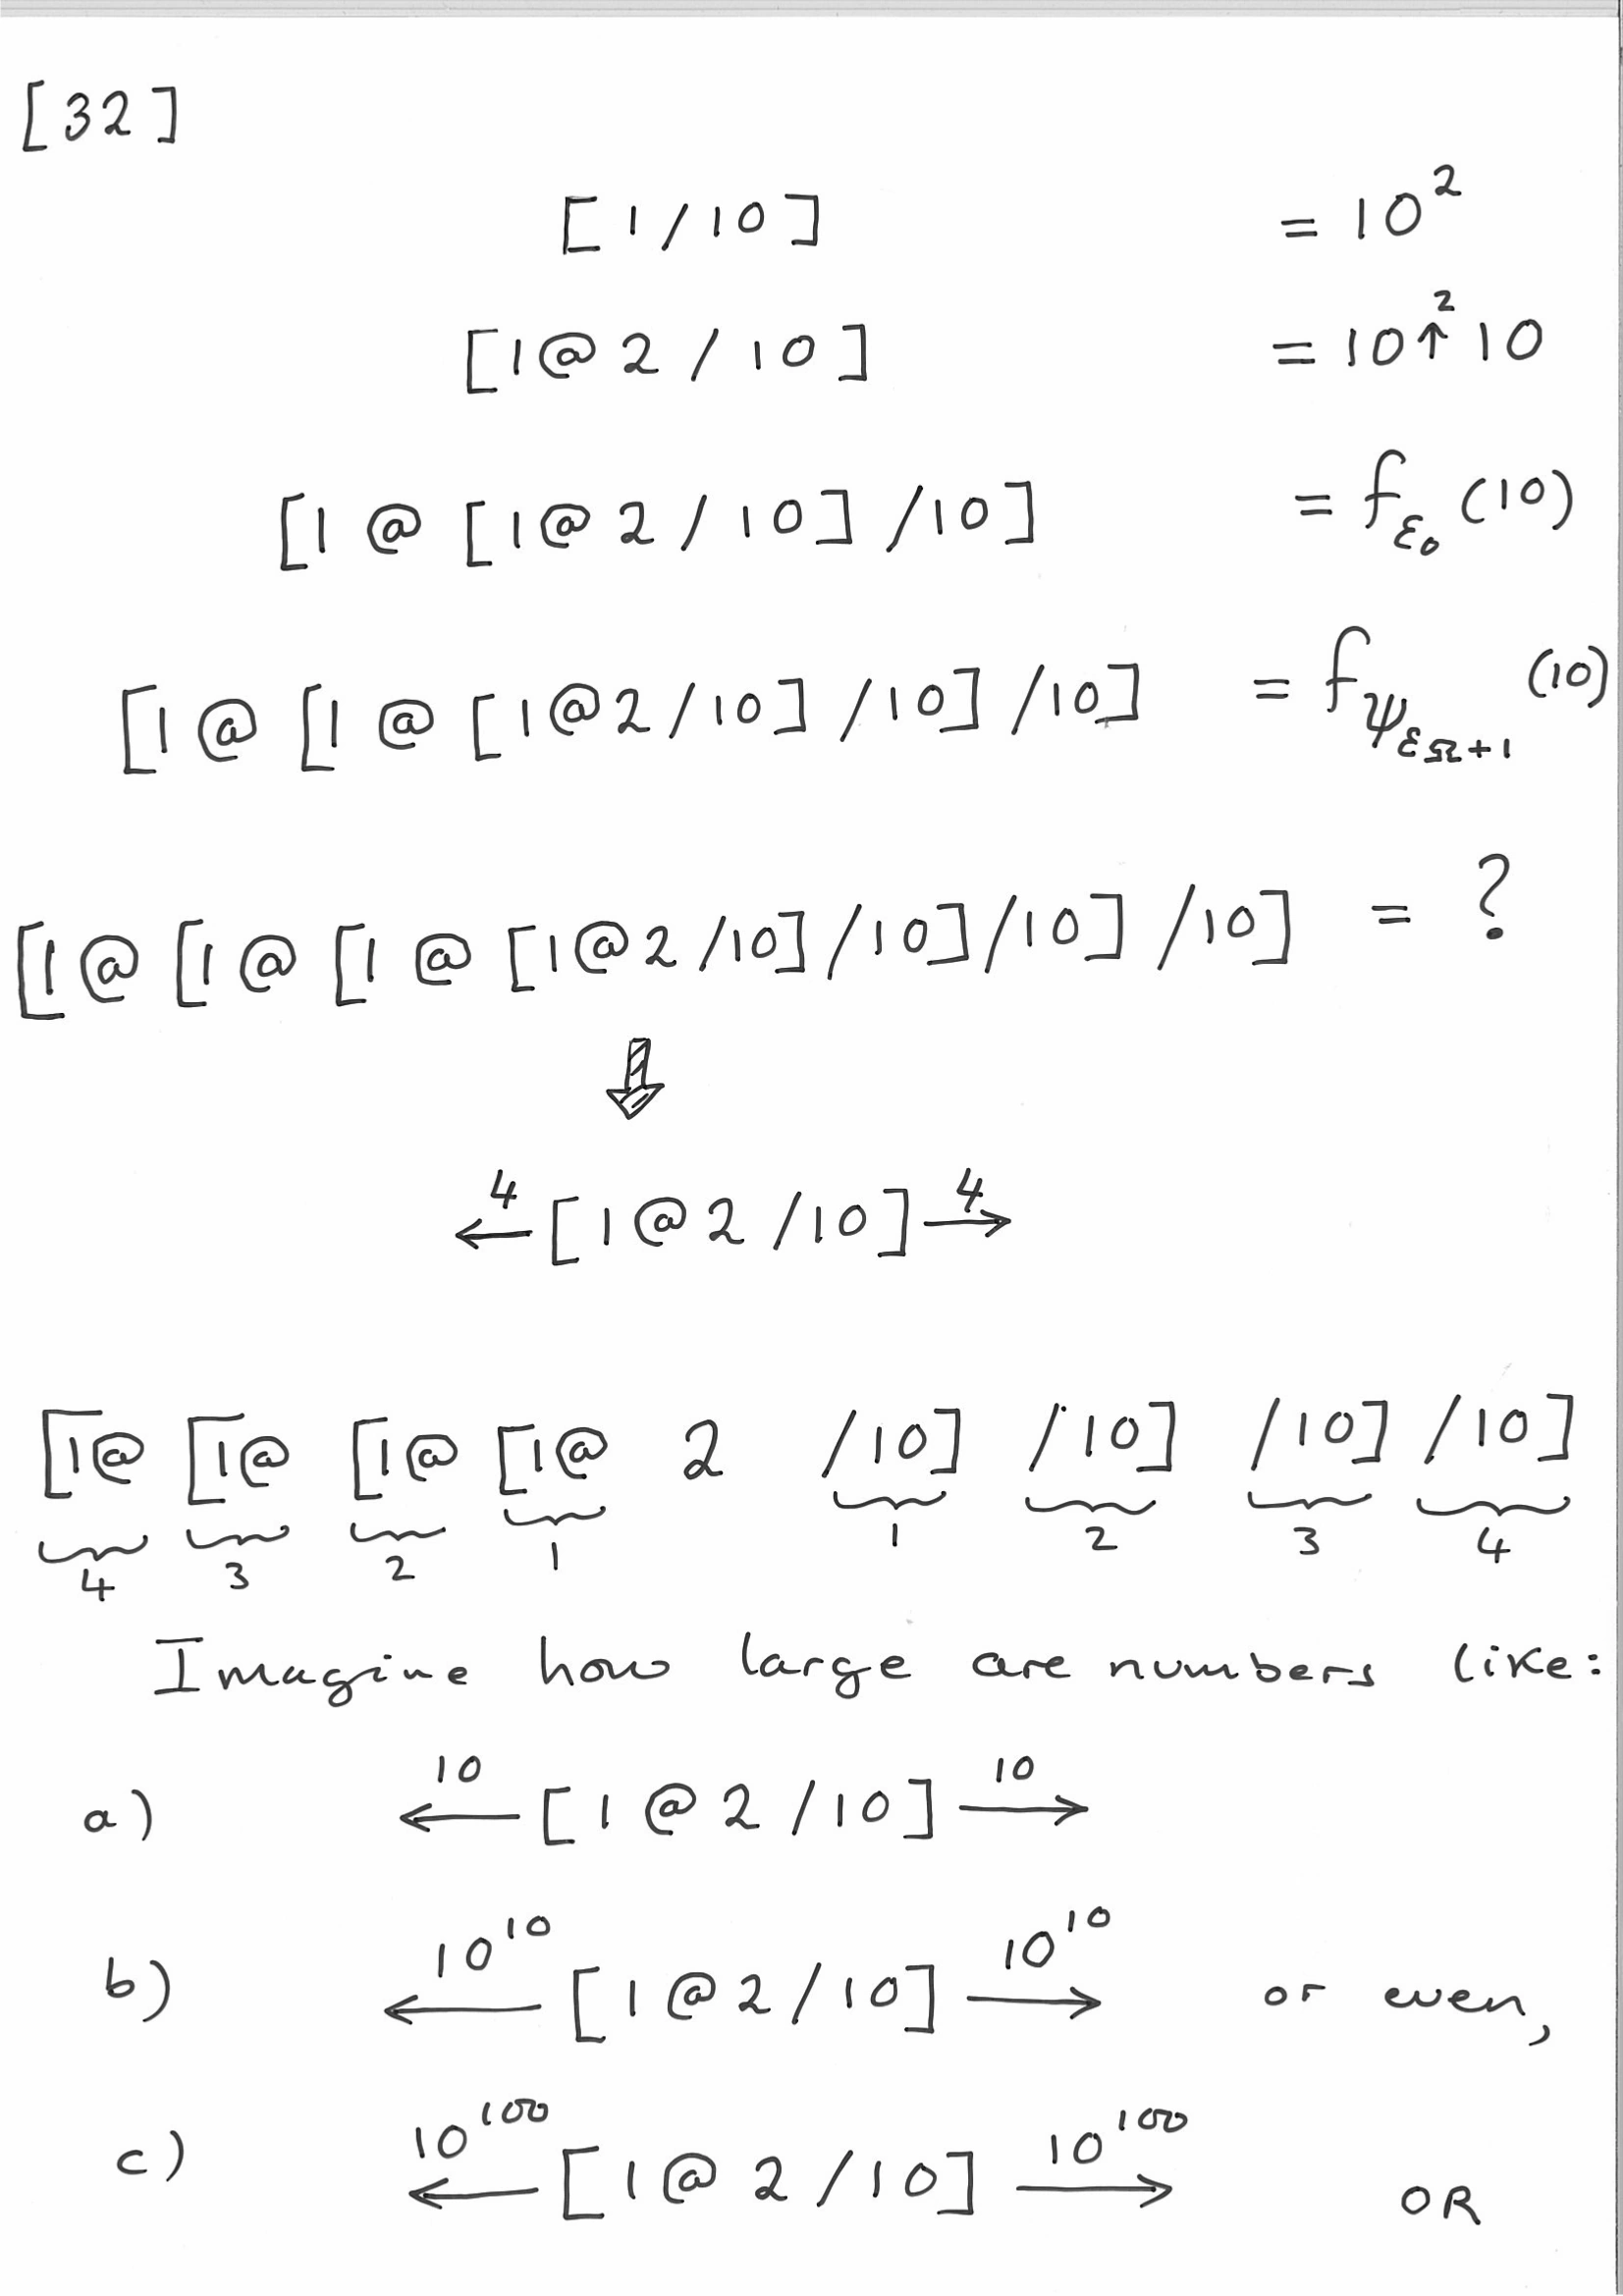 [32]
[1/10] = 10²
[1@2/10] = 10↑²10
[1@[1@2/10]/10] = f_ε₀(10)
[1@[1@[1@2/10]/10]/10] = f_ψ_ε_Ω+1(10)
[1@[1@[1@[1@2/10]/10]/10]/10] = ?
⇓
←⁴[1@2/10]→⁴
[1@ [1@ [1@ [1@ 2 /10] /10] /10] /10]
4 3 2 1 1 2 3 4
Imagine how large are numbers like:
a) ←^10 [1@2/10] →^10
b) ←^10^10 [1@2/10] →^10^10 or even,
c) ←^10^100 [1@2/10] →^10^100 OR